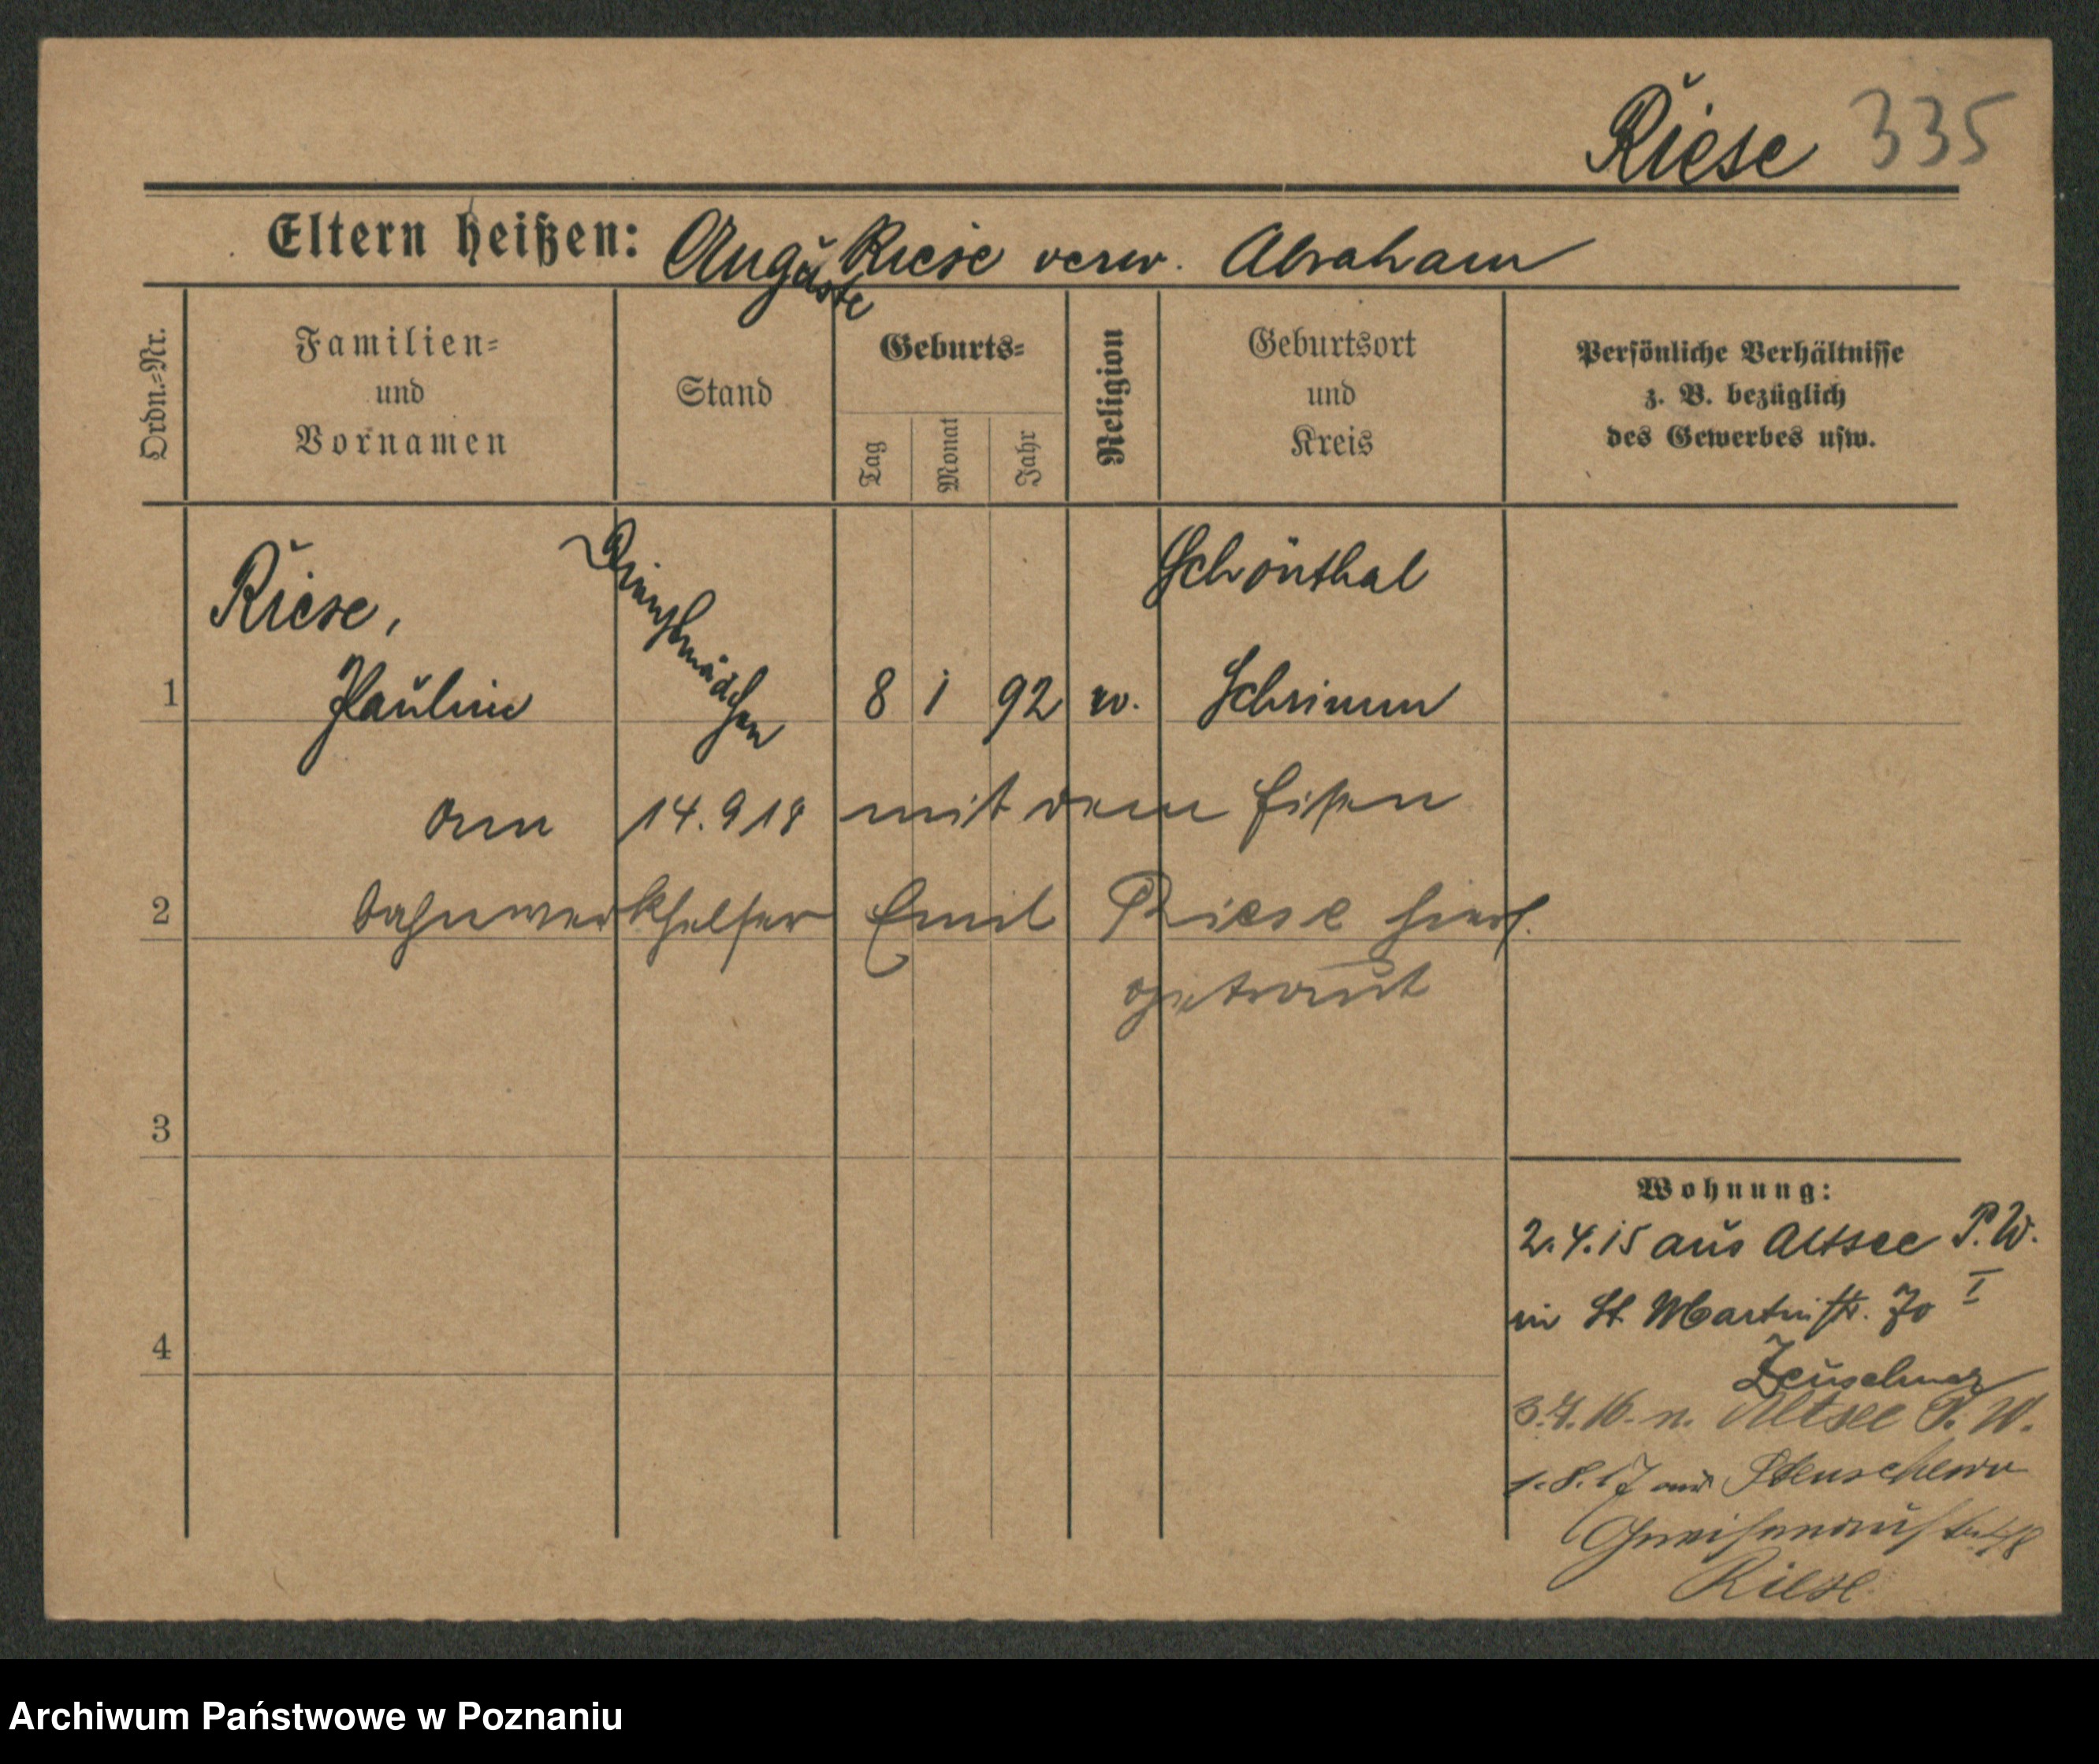 Riese 335
Eltern heißen: Auguste Riese verw. Abraham
Ordn.=Nr.
Familien=
und
Vornamen
Stand
Geburts=
Tag
Monat
Jahr
Religion
Geburtsort
und
Kreis
Persönliche Verhältnisse
z. B. bezüglich
des Gewerbes usw.
Riese,
Dienstmädchen
Schönthal
1 Pauline 8 1 92 Schrimm
am 14.9 18 mit dem Eisen
2 bahnwerkhelfer Emil Riese hier
getraut
3
4
Wohnung:
2.4.15 aus Altsee P.W.
in St. Martinstr. 70 I
3.4.16. n. Altsee P. W.
1.8.17 aus
Gneisenaustr.
Riese
Archiwum Państwowe w Poznaniu